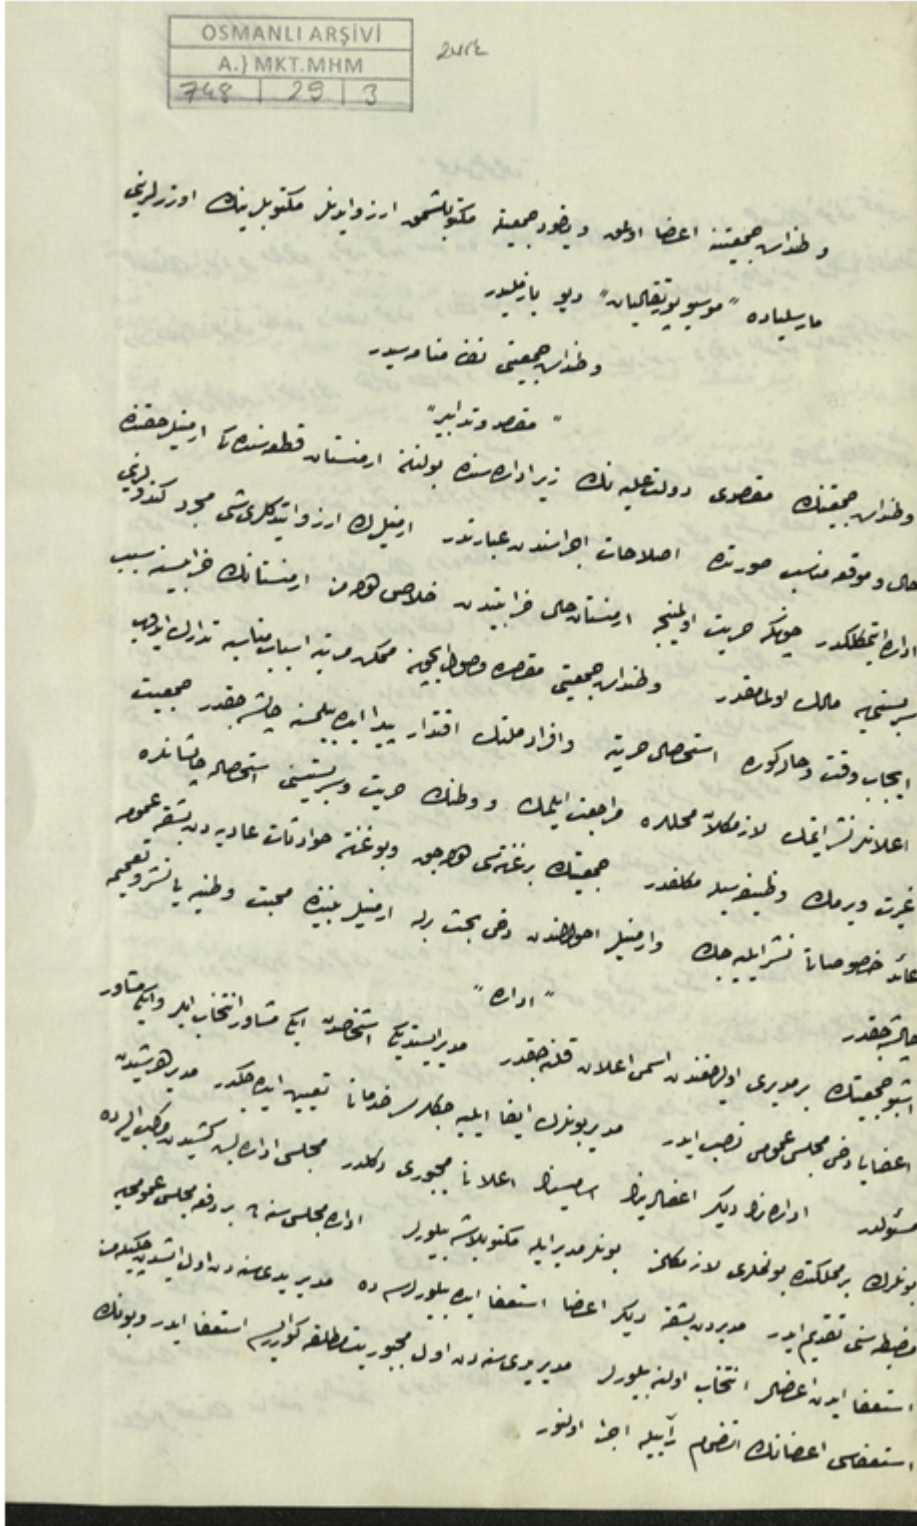 OSMANLI ARŞİVİ
A.} MKT.MHM
748 | 29 | 3
جمعيتنه اعضا اولمق وياخود جمعيته مكتوبلشمق ارزو ايدنلر مكتوبلرينك اوزرلرينى
مارسيلياده "موسيو پورتقاليان" ديو يازمليدر
جمعيتى نظامنامه سيدر
"مقصد و تدابير"
جمعيتنك مقصدى دولت عليه نك زير اداره سنده بولنان ارمنستان قطعه سنده كى ارمنيلر حقنده
حال و موقعه مناسب صورتده اصلاحات اجراسندن عبارتدر ارمنيلرك ارزو ايتدكلرى شى مجرد كندولرينى
اداره ايتمكلكدر چونكه حريت اولمينجه ارمنستان حال خرابيتدن خلاص
مالك اولمامقدر جمعيتى مقصده وصول ايچون ممكن مرتبه اسباب مناسبه تدارك ايدوب
ايجاب وقت و حاله كوره استحصال حريته و افراد ملتك اقتدار پيدا ايده بيلمسنه چاليشه جقدر جمعيت
اعلانلر نشر ايتمك لازمكلان محللره مراجعت ايلمك و وطنك حريت و سربستيتنى استحصاله چاليشانلره
غيرت ويرمك وظيفه سيله مكلفدر جمعيتك بر غزته سى اوله جق و بو غزته حوادثات عاديه دن بشقه عمومه
عائد خصوصاتى نشر ايليه جك و ارمنيلر احوالندن دخى بحث ارمنيلر بيننده محبت وطنيه يى نشر و تعميمه
چاليشه جقدر
"اداره"
اشبو جمعيتك بر مديرى اوله جغندن اسمى اعلان قلنه جقدر مدير ايستديكى اشخاصدن ايكى مشاور انتخاب ايدر و ايكى مشاور
اعضايى دخى مجلس عمومى نصب ايدر مدير بونلرك ايفا ايليه جكلرى خدماتى تعيين ايده جكدر مدير هر شيدن
مسئولدر اداره نك ديكر اعضالرينك اسملرينك اعلانى مجبورى دكلدر مجلس اداره بش كشيدن مركب ايسه ده
بونلرك بر مملكتده بولنملرى لازمكلمز بونلر مدير ايله مكتوبلاشه بيلورلر اداره مجلسى سنه ده بر دفعه مجلس عمومى يه
مضبطه سنى تقديم ايدر مديردن بشقه ديكر اعضا استعفا ايده بيلورلرسه ده مدير يدى سنه دن اول ايشدن چكيله مز
استعفا ايدن اعضالر انتخاب اولنه بيلورلر مدير يدى سنه دن اول مجبوريت مطلقه كورورسه استعفا ايدر و بونك
استعفاسى اعضانك انضمام رأييله اجرا اولنور